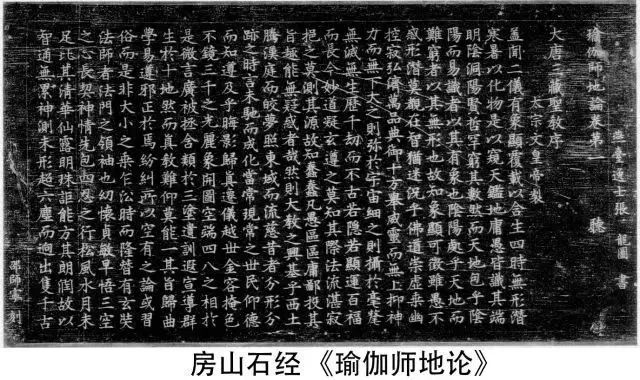 燕臺逸士張龍圖 書
瑜伽師地論卷第一 聽
大唐三藏聖教序
太宗文皇帝製
蓋聞二儀有象顯覆載以含生四時無形潛
寒暑以化物是以窺天鑑地庸愚皆識其端
明陰洞陽賢哲罕窮其數然而天地包乎陰
陽而易識者以其有象也陰陽處乎天地而
難窮者以其無形也故知象顯可徵雖愚不
惑形潛莫覩在智猶迷況乎佛道崇虛乘幽
控寂弘濟萬品典御十方舉威靈而無上抑神
力而無下大之則彌於宇宙細之則攝於毫釐
無滅無生歷千劫而不古若隱若顯運百福
而長今妙道凝玄遵之莫知其際法流湛寂
挹之莫測其源故知蠢蠢凡愚區區庸鄙投其
旨趣能無疑惑者哉然則大教之興基乎西土
騰漢庭而皎夢照東域而流慈昔者分形分
跡之時言未馳而成化當常現常之世民仰德
而知遵及乎晦影歸真遷儀越世金容掩色
不鏡三千之光麗象開圖空端四八之相於
是微言廣被拯含類於三塗遺訓遐宣導群
生於十地然而真教難仰莫能一其旨歸曲
學易遵邪正於焉紛糾所以空有之論或習
俗而是非大小之乘乍沿時而隆替有玄奘
法師者法門之領袖也幼懷貞敏早悟三空
之心長契神情先包四忍之行松風水月未
足比其清華仙露明珠詎能方其朗潤故以
智通無累神測未形超六塵而迥出隻千古
邵師奉 刻
房山石经《瑜伽师地论》